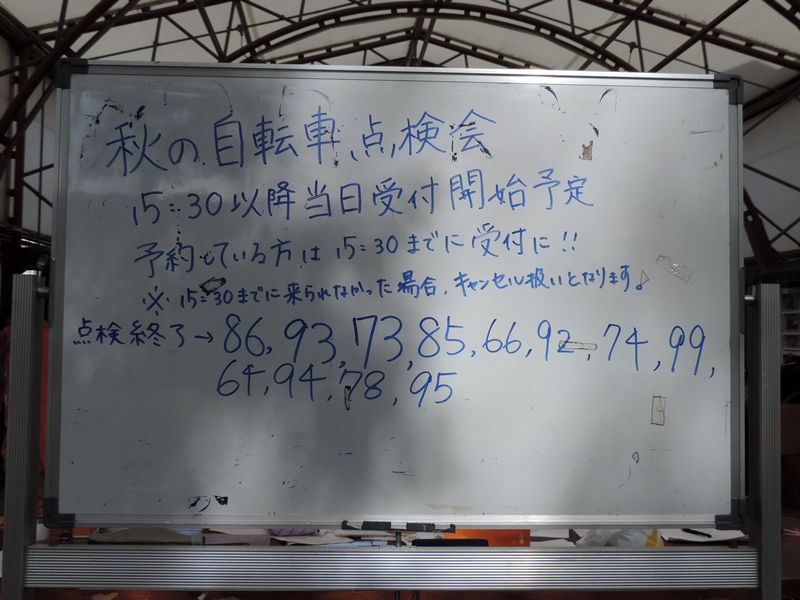 秋の自転車点検会
15:30以降当日受付開始予定
予約している方は15:30までに受付に!!
※15:30までに来られなかった場合、キャンセル扱いとなります。
点検終了→86,93,73,85,66,92,74,99,
64,94,78,95